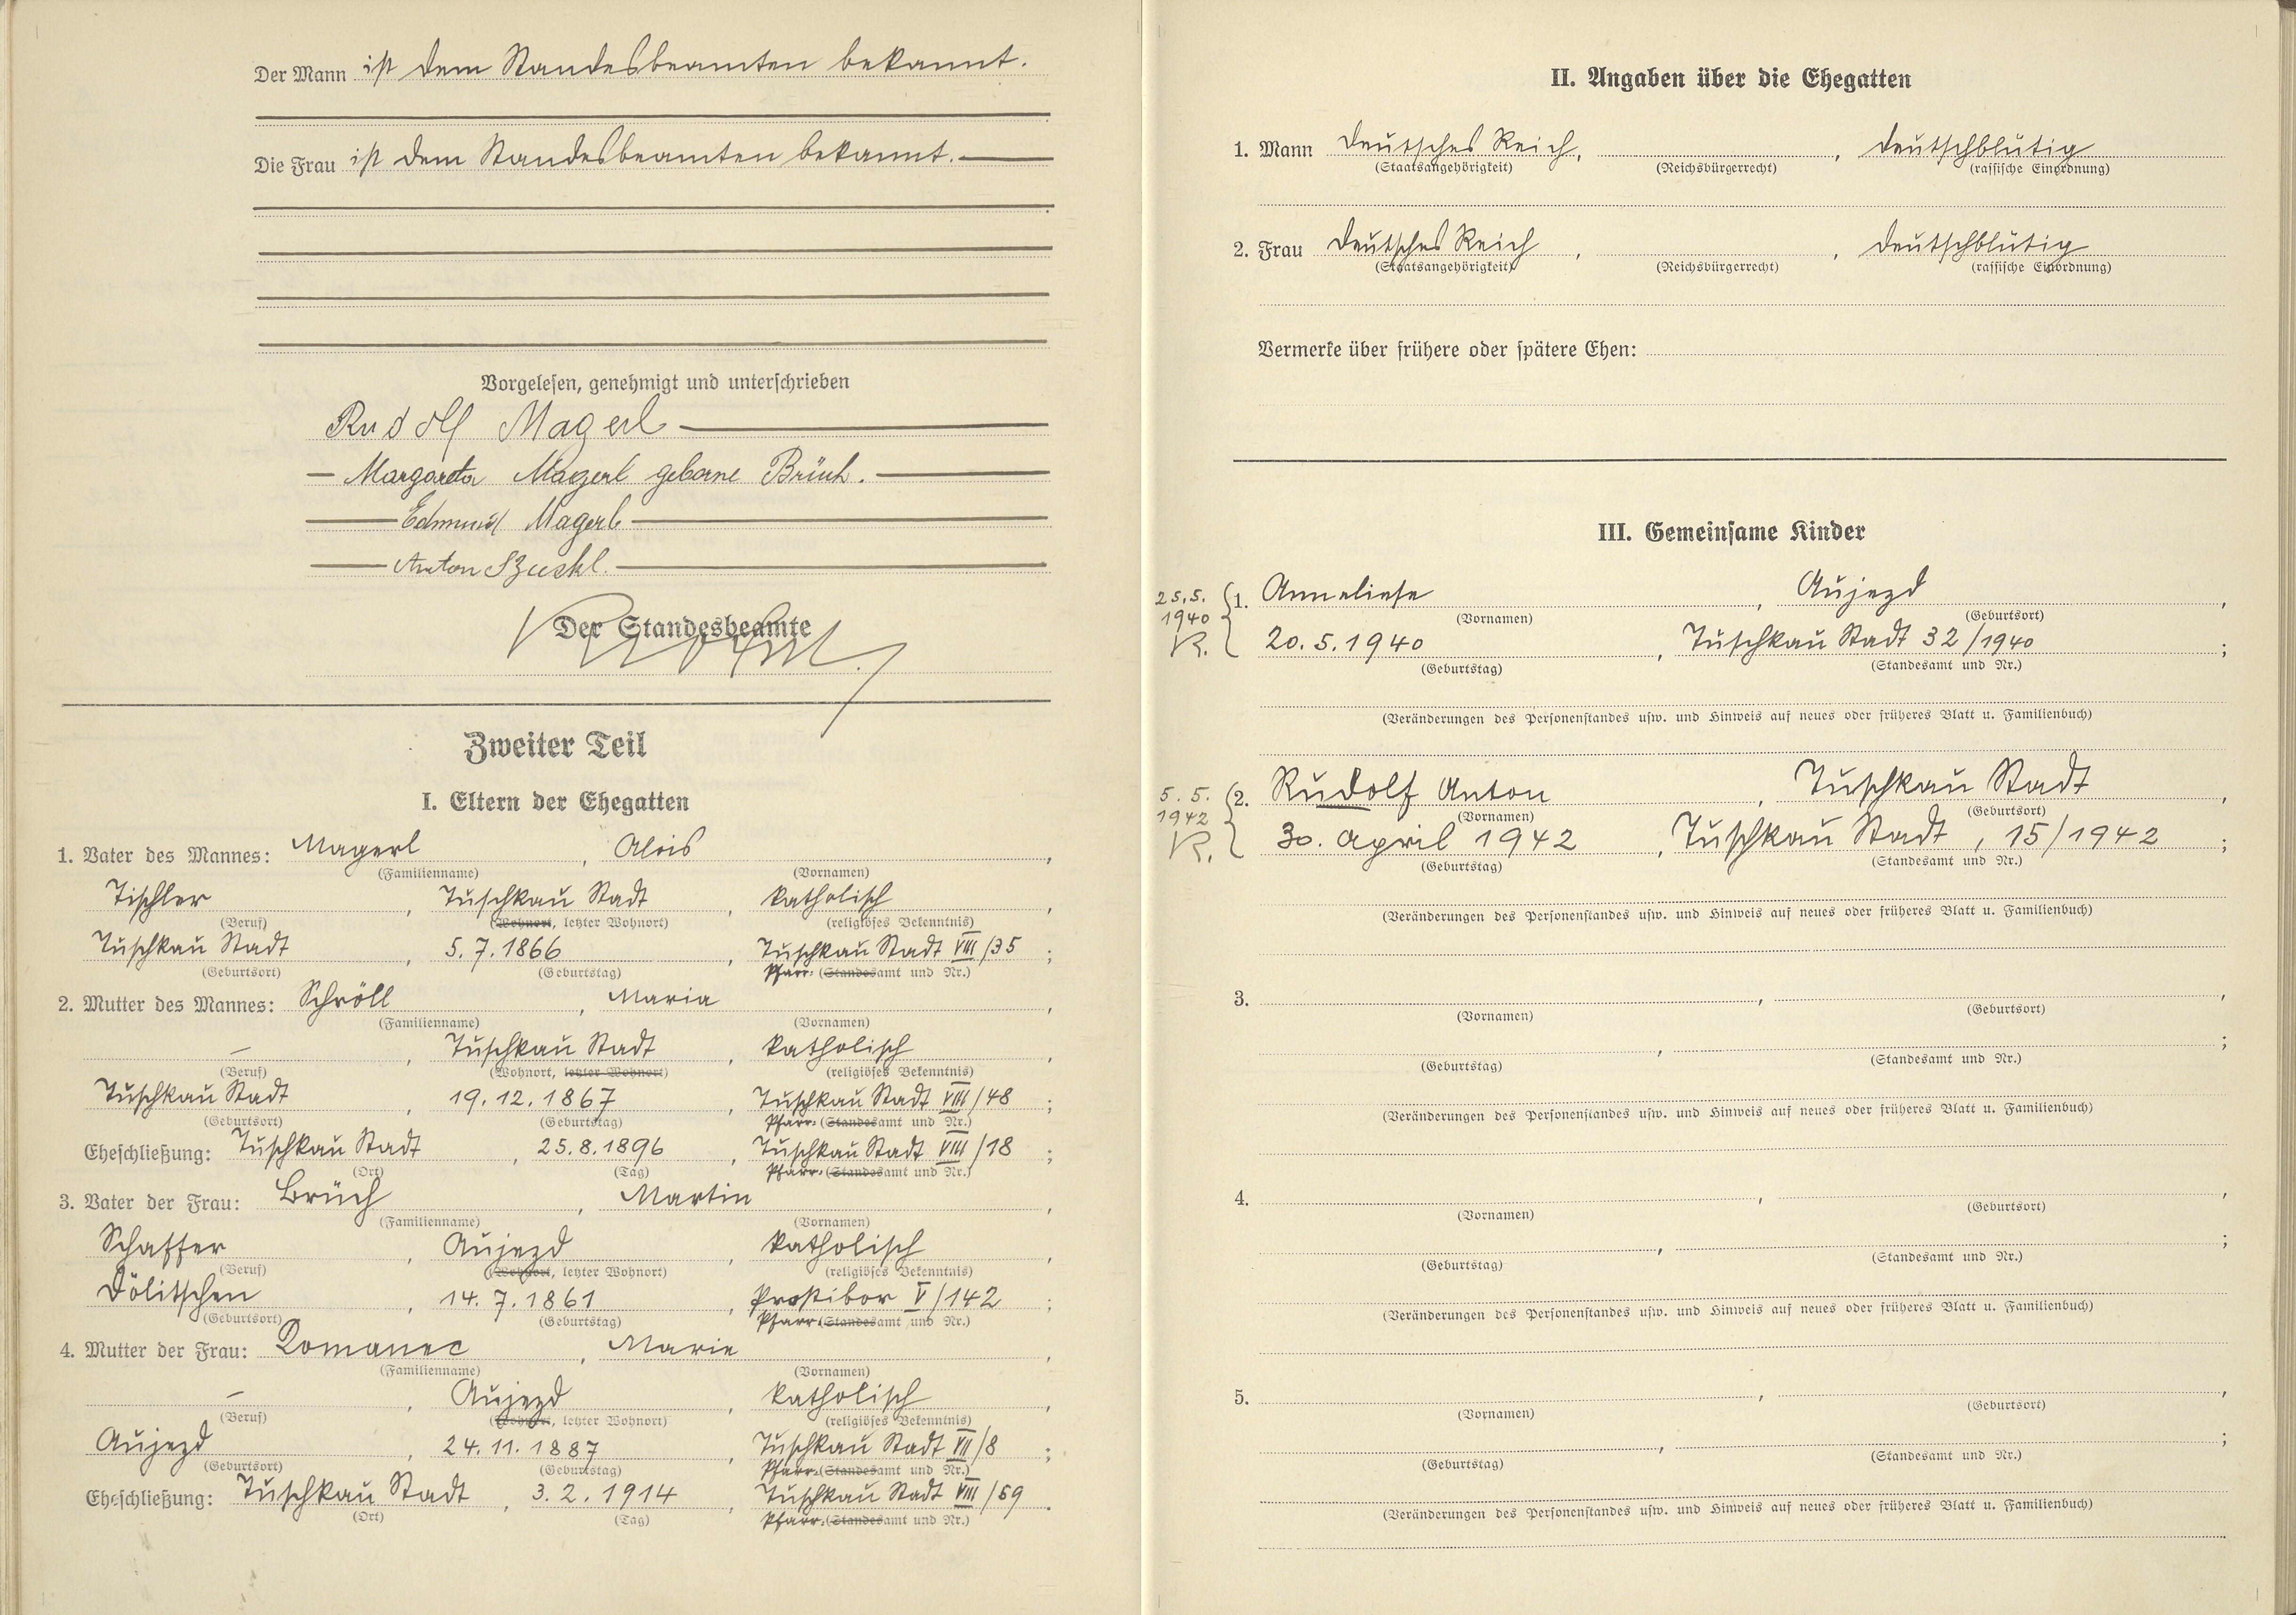 Der Mann ist dem Standesbeamten bekannt.
Die Frau ist dem Standesbeamten bekannt.
Vorgelesen, genehmigt und unterschrieben
Rudolf Magerl
Margareta Magerl geborne Brüch.
Edmund Magerl
Anton
Der Standesbeamte
Zweiter Teil
I. Eltern der Ehegatten
1. Vater des Mannes: Magerl, Alois,
(Familienname) (Vornamen)
Tischler, Tuschkau Stadt, katholisch,
(Beruf) (Wohnort, letzter Wohnort) (religiöses Bekenntnis)
Tuschkau Stadt, 5.7.1866, Tuschkau Stadt VIII/35;
(Geburtsort) (Geburtstag) Pfarr- (Standesamt und Nr.)
2. Mutter des Mannes: Schröll, Maria,
(Familienname) (Vornamen)
—, Tuschkau Stadt, katholisch,
(Beruf) (Wohnort, letzter Wohnort) (religiöses Bekenntnis)
Tuschkau Stadt, 19.12.1867, Tuschkau Stadt VIII/48;
(Geburtsort) (Geburtstag) Pfarr- (Standesamt und Nr.)
Eheschließung: Tuschkau Stadt, 25.8.1896, Tuschkau Stadt VIII/18;
(Ort) (Tag) Pfarr- (Standesamt und Nr.)
3. Vater der Frau: Brüch, Martin,
(Familienname) (Vornamen)
Schaffer, Aujezd, katholisch,
(Beruf) (Wohnort, letzter Wohnort) (religiöses Bekenntnis)
Dölitschen, 14.7.1861, Prostibor V/142;
(Geburtsort) (Geburtstag) Pfarr- (Standesamt und Nr.)
4. Mutter der Frau: Romanec, Marie,
(Familienname) (Vornamen)
—, Aujezd, katholisch,
(Beruf) (Wohnort, letzter Wohnort) (religiöses Bekenntnis)
Aujezd, 24.11.1887, Tuschkau Stadt VII/8;
(Geburtsort) (Geburtstag) Pfarr- (Standesamt und Nr.)
Eheschließung: Tuschkau Stadt, 3.2.1914, Tuschkau Stadt VIII/59.
(Ort) (Tag) Pfarr- (Standesamt und Nr.)
II. Angaben über die Ehegatten
1. Mann Deutsches Reich, , deutschblütig
(Staatsangehörigkeit) (Reichsbürgerrecht) (rassische Einordnung)
2. Frau Deutsches Reich, , deutschblütig
(Staatsangehörigkeit) (Reichsbürgerrecht) (rassische Einordnung)
Vermerke über frühere oder spätere Ehen:
III. Gemeinsame Kinder
25.5. 1. Anneliese, Aujezd,
1940 (Vornamen) (Geburtsort)
R. 20.5.1940, Tuschkau Stadt 32/1940;
(Geburtstag) (Standesamt und Nr.)
(Veränderungen des Personenstandes usw. und Hinweis auf neues oder früheres Blatt u. Familienbuch)
5.5. 2. Rudolf Anton, Tuschkau Stadt,
1942 (Vornamen) (Geburtsort)
R. 30. April 1942, Tuschkau Stadt, 15/1942;
(Geburtstag) (Standesamt und Nr.)
(Veränderungen des Personenstandes usw. und Hinweis auf neues oder früheres Blatt u. Familienbuch)
3. , ,
(Vornamen) (Geburtsort)
, ;
(Geburtstag) (Standesamt und Nr.)
(Veränderungen des Personenstandes usw. und Hinweis auf neues oder früheres Blatt u. Familienbuch)
4. , ,
(Vornamen) (Geburtsort)
, ;
(Geburtstag) (Standesamt und Nr.)
(Veränderungen des Personenstandes usw. und Hinweis auf neues oder früheres Blatt u. Familienbuch)
5. , ,
(Vornamen) (Geburtsort)
, ;
(Geburtstag) (Standesamt und Nr.)
(Veränderungen des Personenstandes usw. und Hinweis auf neues oder früheres Blatt u. Familienbuch)